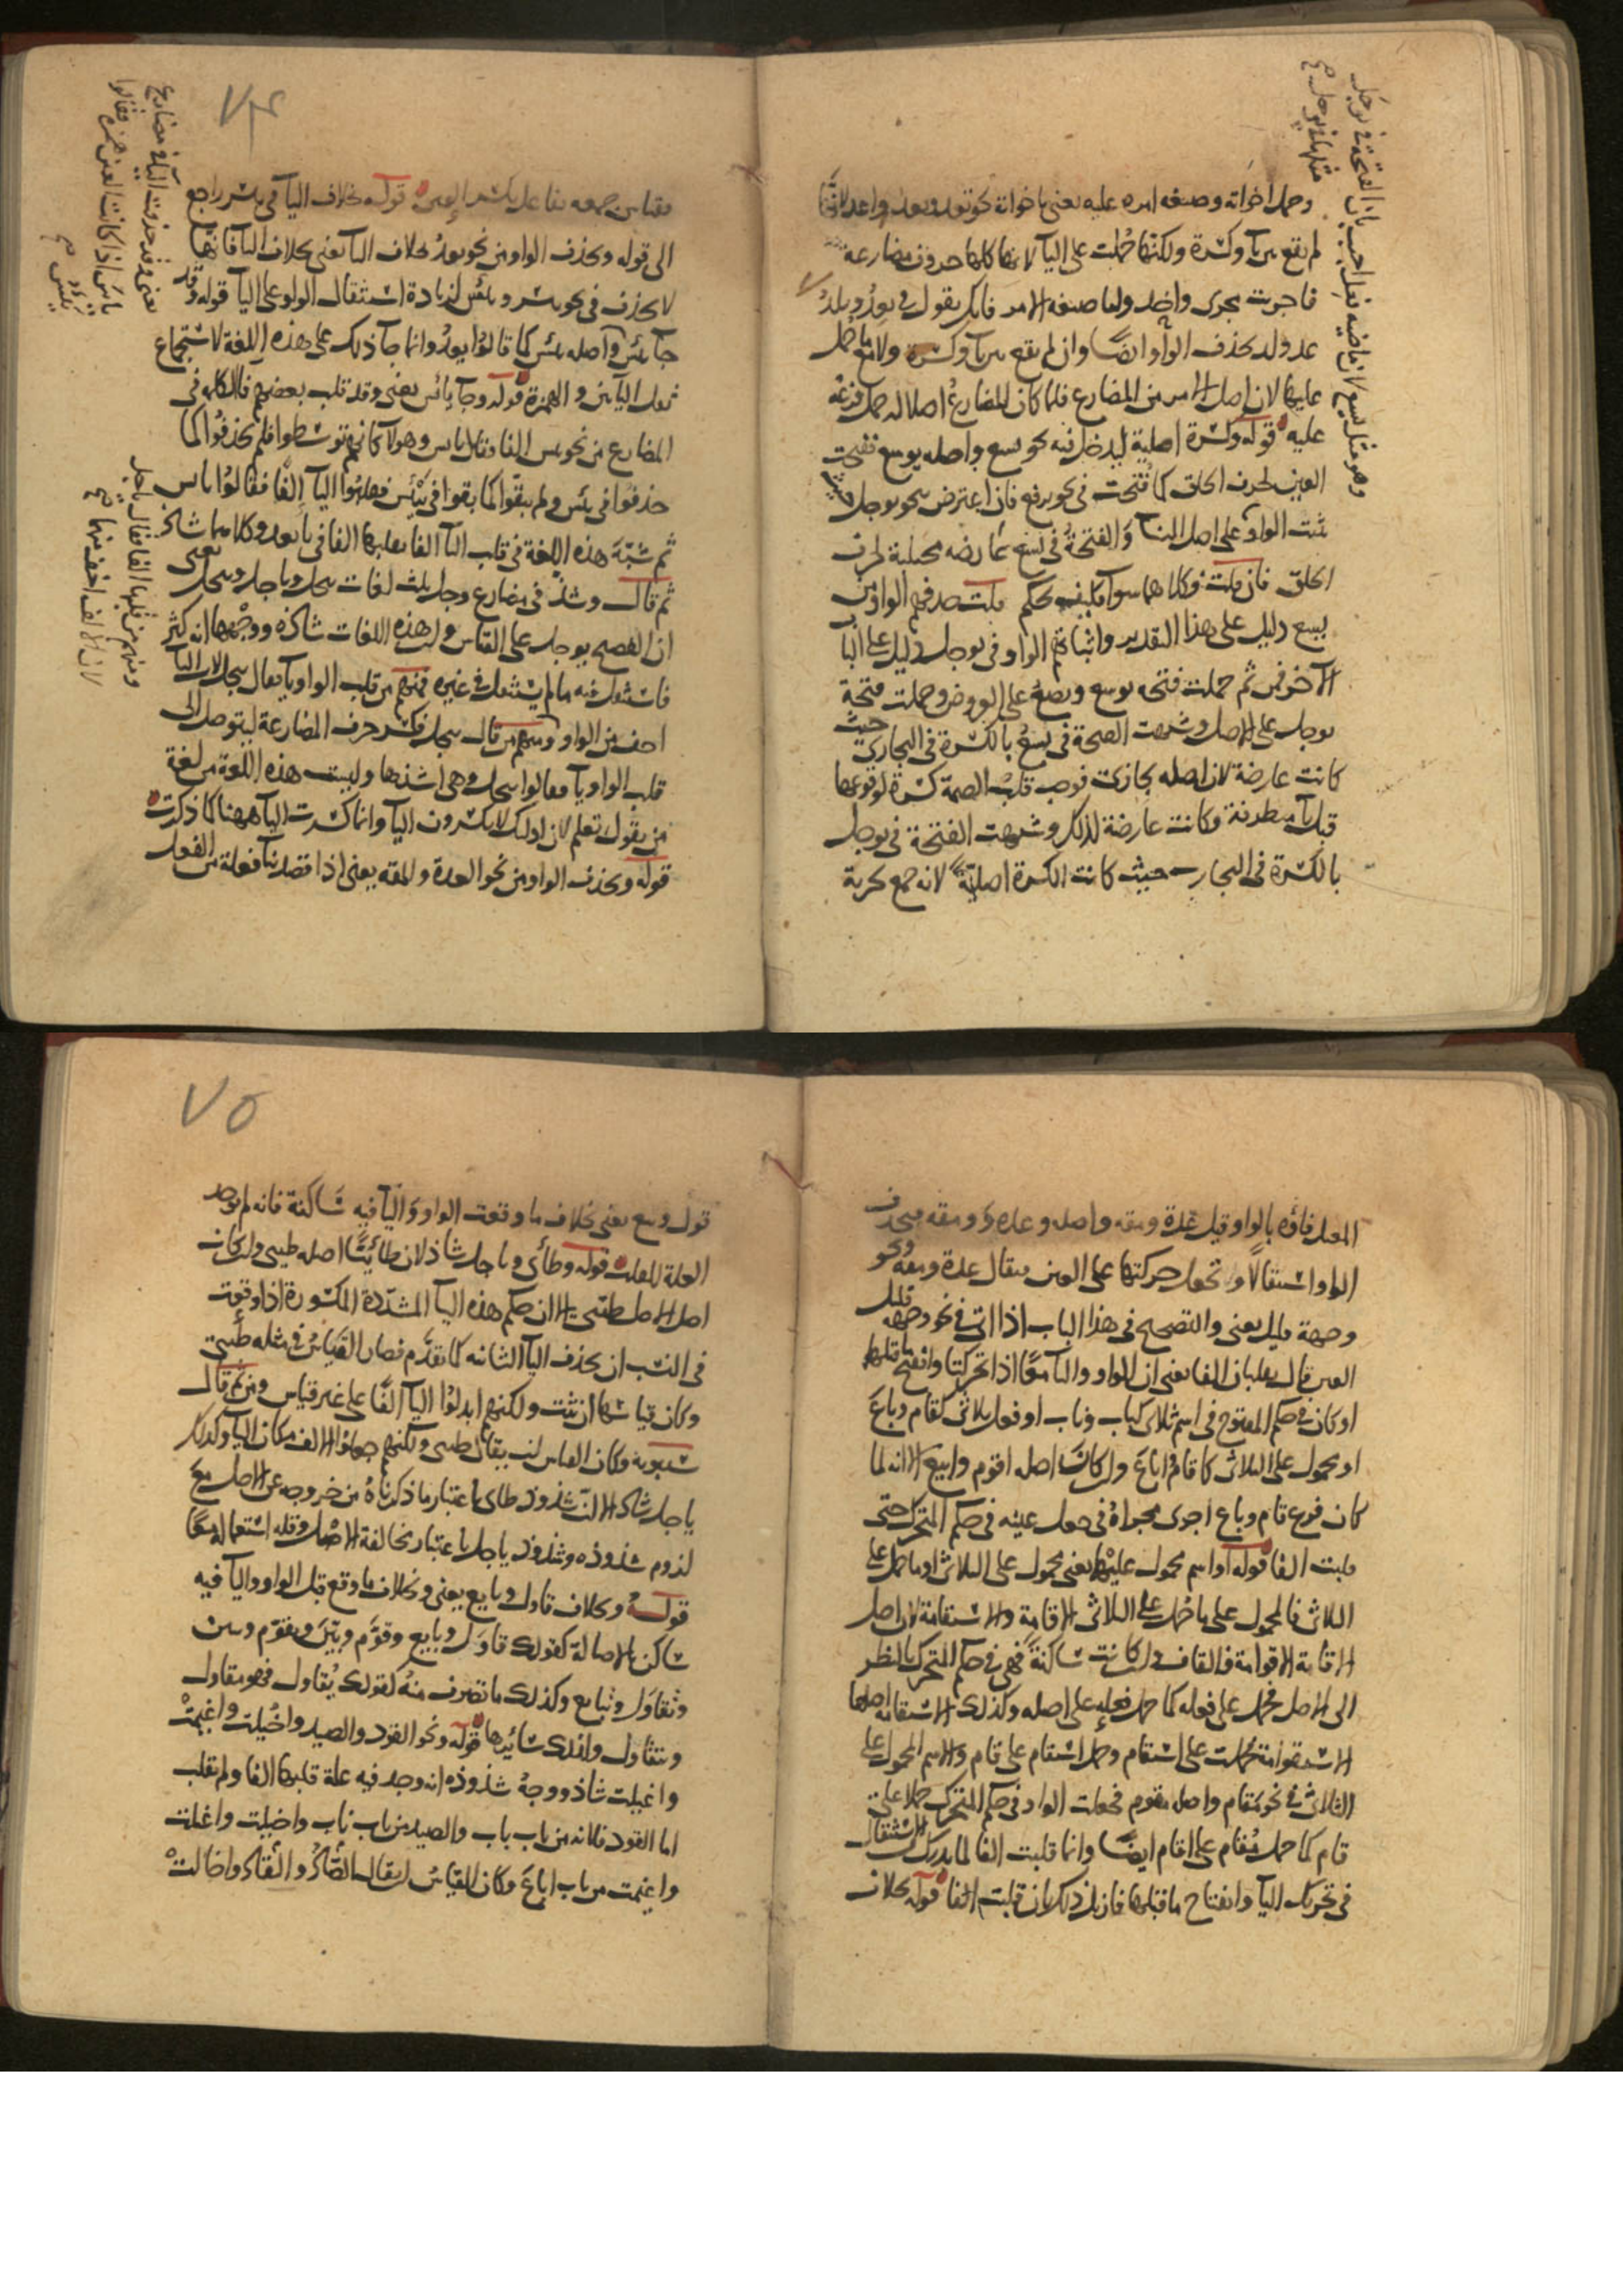 وحمل اخواته وصيغه امره عليه يعنى باخواته نحو تعد ونعد واعد لانها
لم تقع بين يآ وكسرة ولكنها حُملت على اليآ لانها كلها حروف مضارعة
فاجريت مجرى واحد واما صيغه الامر فانك تقول فى يعدُ ويلدُ
عد ولد بحذف الواو ايضًا وان لم يقع بين يآ وكسرة ولا مع ما حمل
عليها لان اصل الامر من المضارع فلما كان المضارعُ اصلا له حمل فرعه
عليه قوله وكسرة اصلية ليدخل فيه نحو يسع واصله يوسع ففتحت
العين لحرف الحلق كما فتحت فى نحو يرفع فان اعترض بنحو يوجل
ثبت الواو على اصل البنآ والفتحةُ فى يسع عارضه مجتلبة لحرف
الحلق فان قلت فكلاهما سوآ فكيف يحكم قلت حذفهم الواو من
يسع دليل على هذا التقدير واثباتهم الواو فى يوجل دليل على البنا
الآخر فمن ثم حملت فتحه يوسع ويضع على العروض وحملت فتحة
يوجل على الاصل وشبهت الفتحة فى يسعُ بالكسرة فى التجارى حيث
كانت عارضة لان اصله تجارُى فوجب قلب الضمة كسرة لوقوعها
قبل يآ متطرفة فكانت عارضة لذلك وشبهت الفتحة فى يوجل
بالكسرة فى التجارب حيث كانت الكسرة اصلية لانه جمع تجربة
وهو مثل يسع لان ماضيه فعل اجيب بان الفتحة فى يوجل
مثلها فى يوجل صح
٧٤
فقياس جمعه تفاعل بكسر العين قوله بخلاف اليآ فى ييسر راجع
الى قوله وتحذف الواو من نحو يعدُ بخلاف اليآ يعنى بخلاف اليآ فانها
لا تحذف فى نحو ييسر وييئس لزيادة استثقال الواو على اليآ قوله وقد
جآ يئس واصله ييئس كما قالوا يعدُ وانما جآ ذلك على هذه اللغة لاستجماع
ثقل اليآين والهمزة قوله وجآ يائس يعنى وقد قلب بعضهم فآ الكلمه فى
المضارع من نحو يئس الفا فقال ياءس وهولآ كانهم توسطوا فلم يحذفوا كما
حذفوا فى يئس ولم يبقوا كما بقوا فى ييئس فقلبوا اليآ الفًا فقالوا ياءس
ثم شبّه هذه اللغة فى قلب اليآ الفا بقلبها الفا فى ياتعد وكلاهما شاذ
ثم قال وشذ فى مضارع وجل ثلث لغات ييجل وياجل وييجل يعنى
ان الفصيح يوجل على القياس ولهذه اللغات شاذه ووجهها انه كثر
فاستثقل فيه ما لم يستثقل فى غيره فمنهم من قلب الواو يآ فقال ييجل لان اليآ
اخف من الواو ومنهم من قال ييجل فكسر حرف المضارعة ليتوصل الى
قلب الواو يآ فقالوا ييجل وهى اشذها وليست هذه اللغة من لغة
من يقول تعلم لان اولئك لا يكسرون اليآ وانما كسرت اليآ ههنا كما ذكرت
قوله وتحذف الواو من نحو العدة والمقة يعنى اذا قصد بنآ فعلة من الفعل
يعنى وقد حذفت اليآ فى مضارع
يئسَ اذا كانت العين همزه فقالوا
يئس صح
ومنهم من قلبها الفا فقال ياجل
لان الالف اخف منها صح
المعتل فاؤه بالواو قيل عدة ومقه واصله وعدة وومقه فتحذف
الواو استثقالا وتحول حركتها على العين فيقال عدة ومقه ونحو
وجهة قليل يعنى والتصحيح فى هذا الباب اذا اتى فى نحو وجهة قليل
العين قال يقلبان الفا يعنى ان الواو واليآ معًا اذا تحركتا وانفتح ما قبلها
او كان فى حكم المفتوح فى اسم ثلاثى كباب وناب او فعل ثلاثى كقام وباع
او محمول على الثلاثى كاقام واباع وان كان اصله اقوم وابيع الا انه لما
كان فرع قام وباع اجرى مجراهُ فى جعل عينه فى حكم المتحرك حتى
قلبت الفا قوله او اسم محمول عليهما يعنى محمول على الثلاثى او ما حمل على
الثلاثى فالمحمول على ما حُمل على الثلاثى الاقامة والاستقامة لان اصل
الاقامة الاقوامة فالقاف وان كانت ساكنة فهى فى حكم المتحرك بالنظر
الى الاصل فحمل على فعله كما حمل فعله على اصله وكذلك الاستقامه اصلها
الاستقوامة حُملت على استقام وحمل استقام على قام والاسم المحمول على
الثلاثى فى نحو مَقام واصله مقوم فجعلت الواو فى حكم المتحرك حملا على
قام كما حمل مُقام على اقام ايضًا وانما قلبت الفا لما يدرك من الاستثقال
فى تحريك اليآ وانفتاح ما قبلها فازيل ذلك بان قلبت الفا قوله بخلاف
٧٥
قول وبيع يعنى بخلاف ما وقعت الواو واليآ فيه ساكنة فانه لم يوجد
العلة للقلب قوله وطائى وياجل شاذ لان طائيًّا اصله طيئى وان كان
اصل الاصل طيّئى الا ان حكم هذه اليآ المشددة المكسورة اذا وقعت
فى النسب ان تحذف اليآ الثانيه كما تقدّم فصار القياس فى مثله طيئى
وكان قياسها ان تثبت ولكنهم ابدلوا اليآ الفًا على غير قياس ومن ثم قال
سيبويه وكان القياس ان يقال طيئى ولكنهم جعلوا الالف مكان اليآ وكذلك
ياجل شاذ الا ان شذوذ طاى باعتبار ما ذكرناهُ من خروجه عن الاصل مع
لزوم شذوذه وشذوذ ياجل باعتبار مخالفة الاصل وقله استعماله معًا
قوله وبخلاف قاول وبايع يعنى وبخلاف ما وقع قبل الواو واليآ فيه
ساكن بالاصالة كقولك قاوَل وبايع وقوّم وبيّن ويقوّم ويبين
وتقاوَل وتبايع وكذلك ما تصرف منهُ كقولك يُقاول فهو مقاول
ويتقاول وكذلك سائرها قوله ونحو القود والصيد واخْيلت واغيمتْ
واغيلت شاذ ووجهُ شذوذه انه وجد فيه علة قلبها الفا ولم تقلب
اما القود فلانه من باب باب والصيد من باب ناب واخيلت واغيلت
واغيمت من باب اباعَ وكان القياس ان يقال الصَّادُ والقَاد واخالتْ